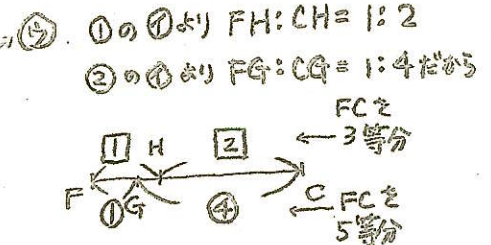 ㋒. ①の④より FH:CH=1:2
②の④より FG:CG=1:4だから
FCを
1 H 2 ← 3等分
F ① G ④ C ← FCを
5等分